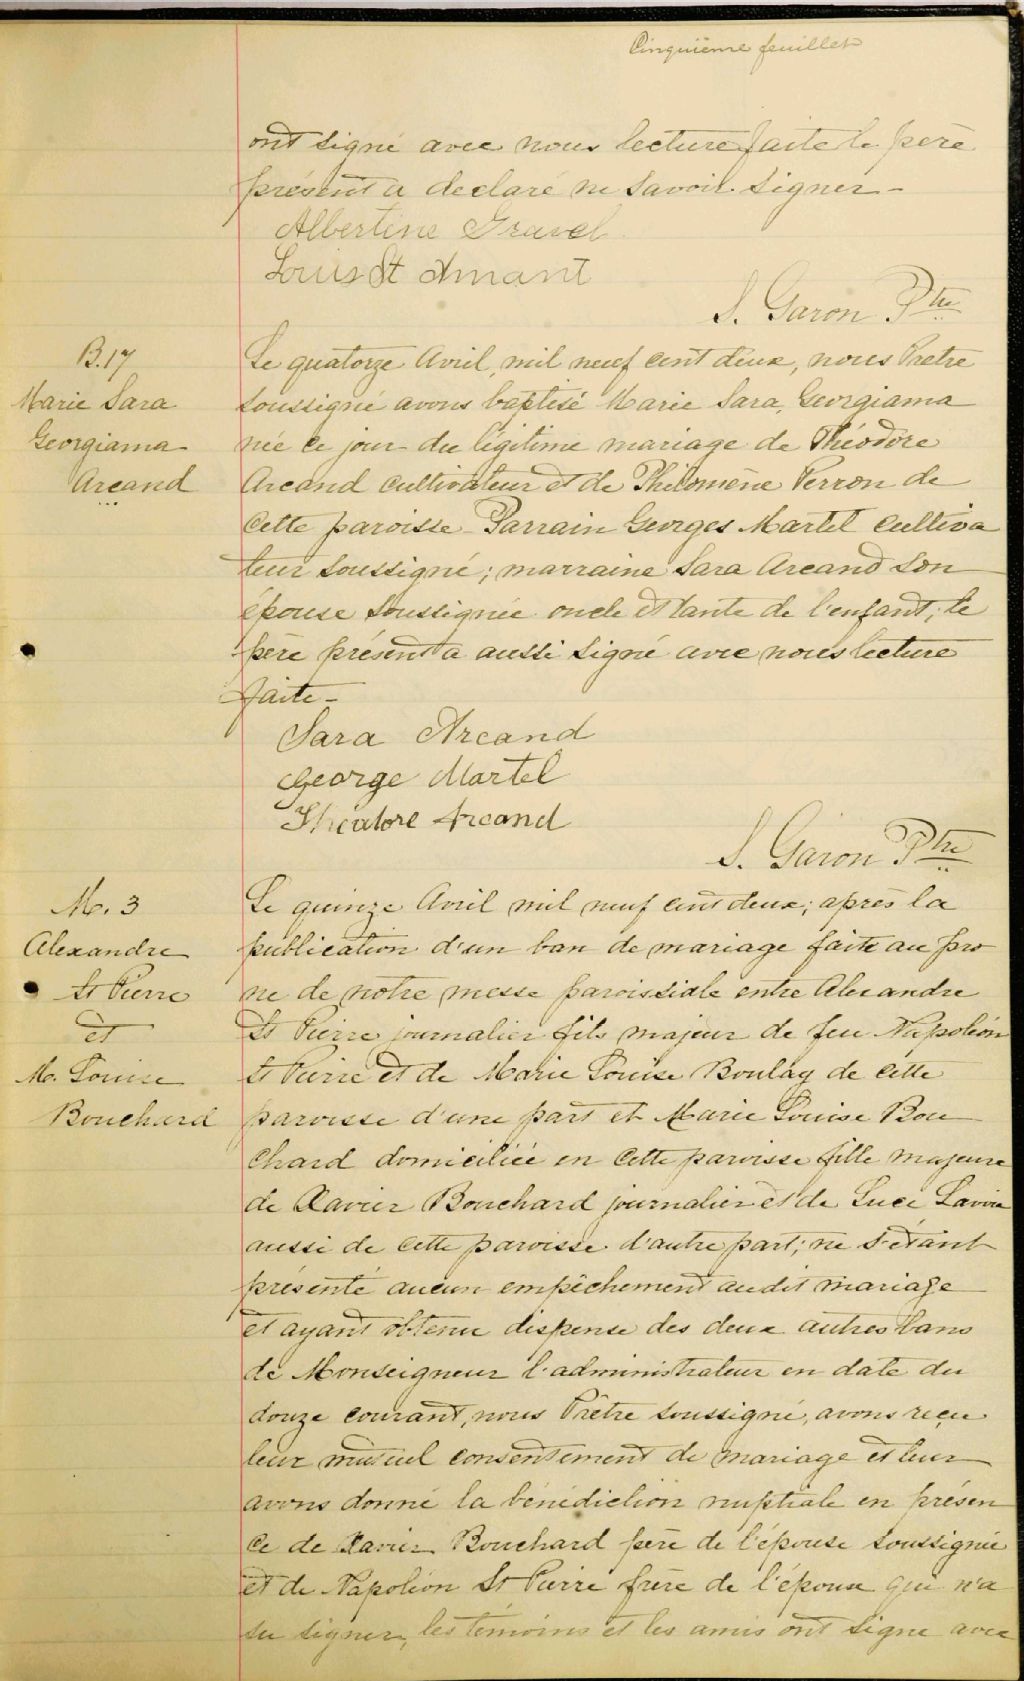 Cinquième feuillet
ont signé avec nous lecture faite le père
présent a declaré ne savoir signer -
Albertine Gravel
Louis St Amant
S. Garon Ptre
B.17
Marie Sara
Georgiama
Arcand
Le quatorze Avril, mil neuf cent deux, nous Pretre
soussigné avons baptisé Marie Sara, Georgiama
née ce jour du légitime mariage de Théodore
Arcand cultivateur et de Philomène Perron de
cette paroisse - Parrain Georges Martel cultiva
teur soussigné; marraine Sara Arcand son
épouse soussignée oncle et tante de l'enfant; le
père présent a aussi signé avec nous lecture
faite -
Sara Arcand
George Martel
Theodore Arcand
S. Garon Ptre
M. 3
Alexandre
St Pierre
et
M. Louise
Bouchard
Le quinze Avril mil neuf cent deux; après la
publication d'un ban de mariage faite au pro
ne de notre messe paroissiale entre Alexandre
St Pierre journalier fils majeur de feu Napoléon
St Pierre et de Marie Louise Boulay de cette
paroisse d'une part et Marie Louise Bou
chard domiciliée en cette paroisse fille majeure
de Xavier Bouchard journalier et de Luce Lavoie
aussi de cette paroisse d'autre part; ne s'étant
présenté aucun empêchement audit mariage
et ayant obtenu dispense des deux autres bans
de Monseigneur l'administrateur en date du
douze courant, nous Prêtre soussigné, avons reçu
leur mutuel consentement de mariage et leur
avons donné la bénédiction nuptiale en présen
ce de Xavier Bouchard père de l'épouse soussignée
et de Napoléon St Pierre frère de l'époux qui n'a
su signer, les témoins et les amis ont signé avec